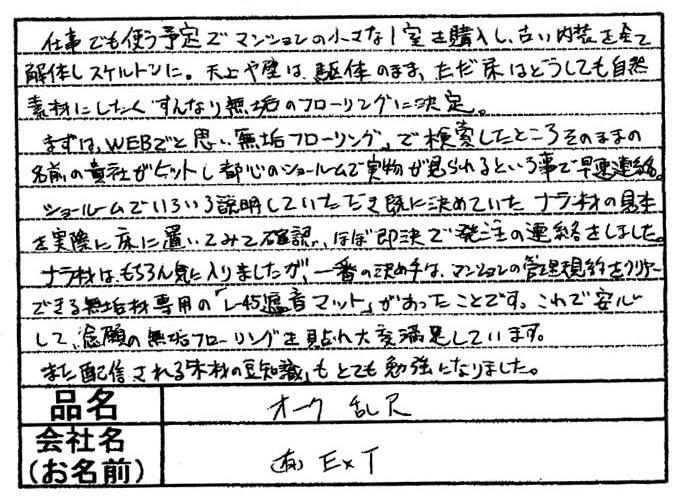 仕事でも使う予定でマンションの小さな1室を購入し、古い内装を全て
解体しスケルトンに。天上や壁は、駆体のまま、ただ床はどうしても自然
素材にしたく すんなり無垢のフローリングに決定。
まずは、WEBでと思い「無垢フローリング」で検索したところそのままの
名前の貴社がヒットし都心のショールームで実物が見られるという事で早速連絡。
ショールームでいろいろ説明していただき既に決めていたナラ材の見本
を実際に床に置いてみて確認、ほぼ即決で発注の連絡をしました。
ナラ材は、もちろん気に入りましたが、一番の決め手は、マンションの管理規約をクリヤー
できる無垢材専用の「L-45遮音マット」があったことです。これで安心
して、念願の無垢フローリングを貼れ大変満足しています。
また配信される「木材の豆知識」もとても勉強になりました。
品名 オーク 乱尺
会社名
(お名前) (有) ExT